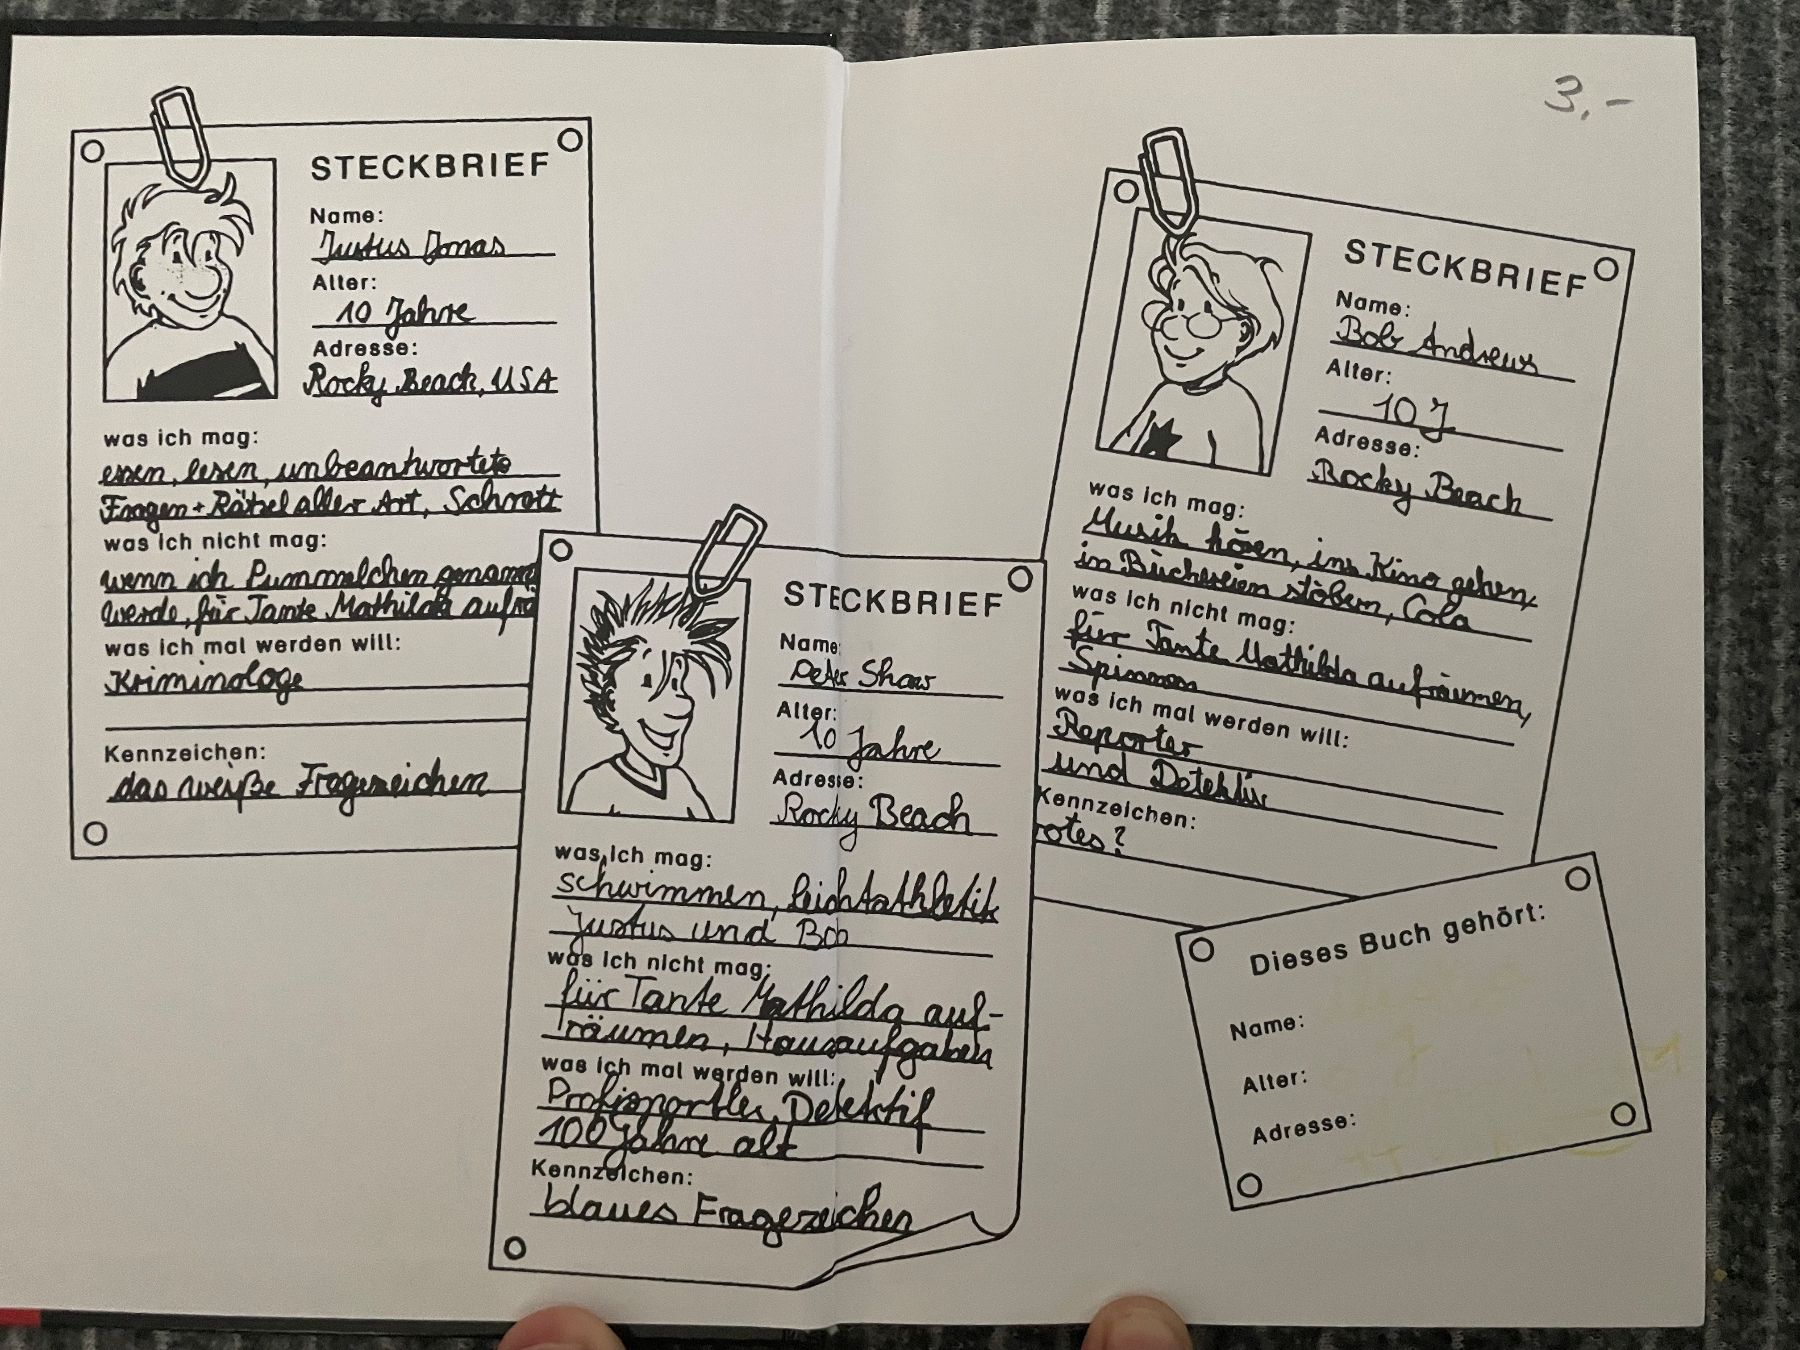 STECKBRIEF
Name:
Justus Jonas
Alter:
10 Jahre
Adresse:
Rocky Beach, USA
was ich mag:
essen, lesen, unbeantwortete
Fragen + Rätsel aller Art, Schrott
was ich nicht mag:
wenn ich Pummelchen genannt
werde, für Tante Mathilda aufrä
was ich mal werden will:
Kriminologe
Kennzeichen:
das weiße Fragezeichen
STECKBRIEF
Name:
Peter Shaw
Alter:
10 Jahre
Adresse:
Rocky Beach
was ich mag:
schwimmen, Leichtathletik
Justus und Bob
was ich nicht mag:
für Tante Mathilda auf-
räumen, Hausaufgaben
was ich mal werden will:
Profisportler, Detektif
100 Jahre alt
Kennzeichen:
blaues Fragezeichen
3,-
STECKBRIEF
Name:
Bob Andrews
Alter:
10 J
Adresse:
Rocky Beach
was ich mag:
Musik hören, ins Kino gehen,
in Büchereien stöbern, Cola
was ich nicht mag:
für Tante Mathilda aufräumen,
Spinnen
was ich mal werden will:
Reporter
und Detektiv
Kennzeichen:
rotes ?
Dieses Buch gehört:
Name:
Alter:
Adresse: